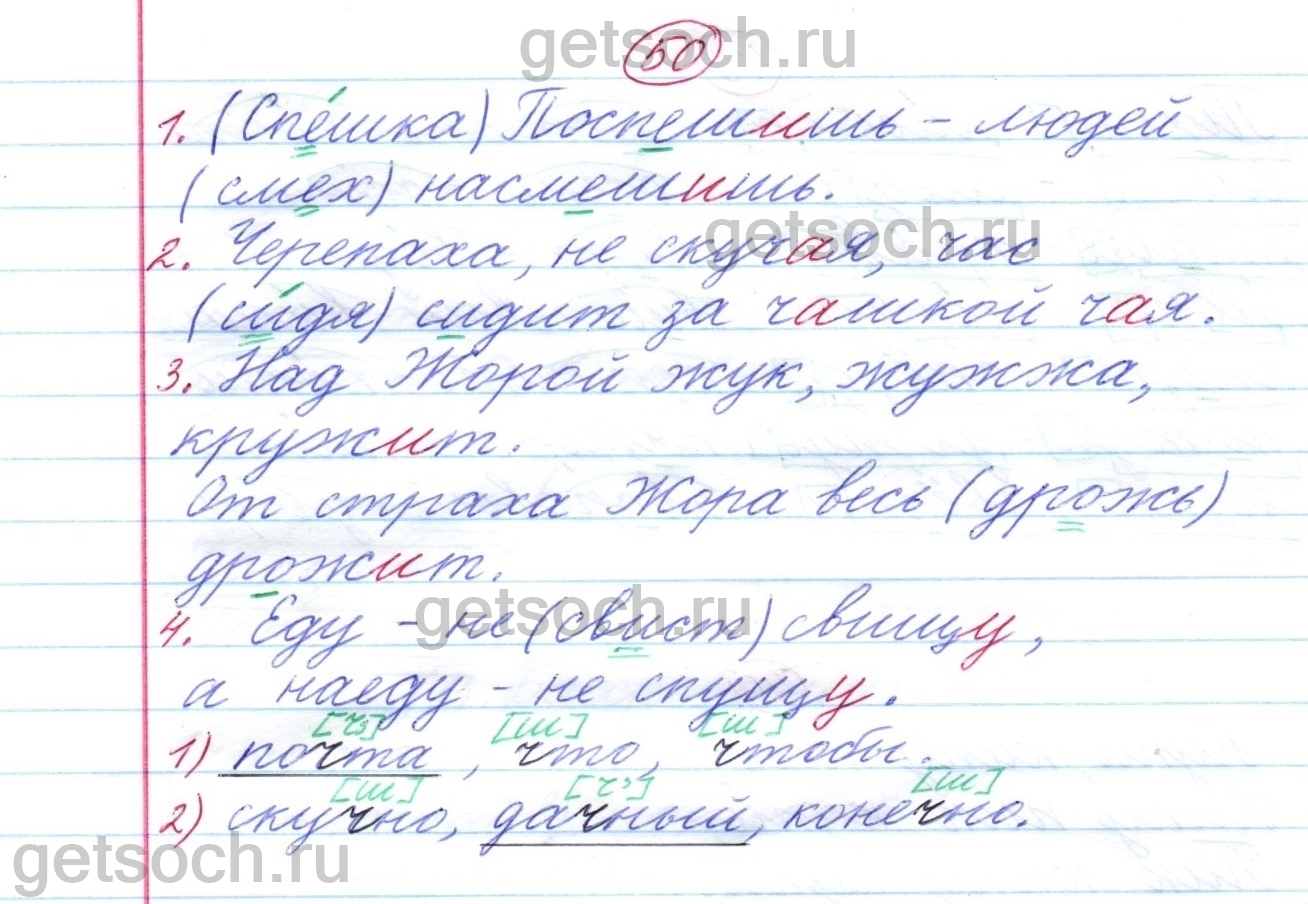 getsoch.ru
50
1. (Спе́шка) Поспешишь – людей
(смех) насмешишь.
getsoch.ru
2. Черепаха, не скучая, час
(си́дя) сидит за чашкой чая.
3. Над Жорой жук, жужжа,
кружит.
От страха Жора весь (дрожь)
дрожит.
getsoch.ru
4. Еду – не (свист) свищу,
а наеду – не спущу.
[ч'] [ш] [ш]
1) почта, что, чтобы.
[ш] [ч'] [ш]
2) скучно, дачный, конечно.
getsoch.ru